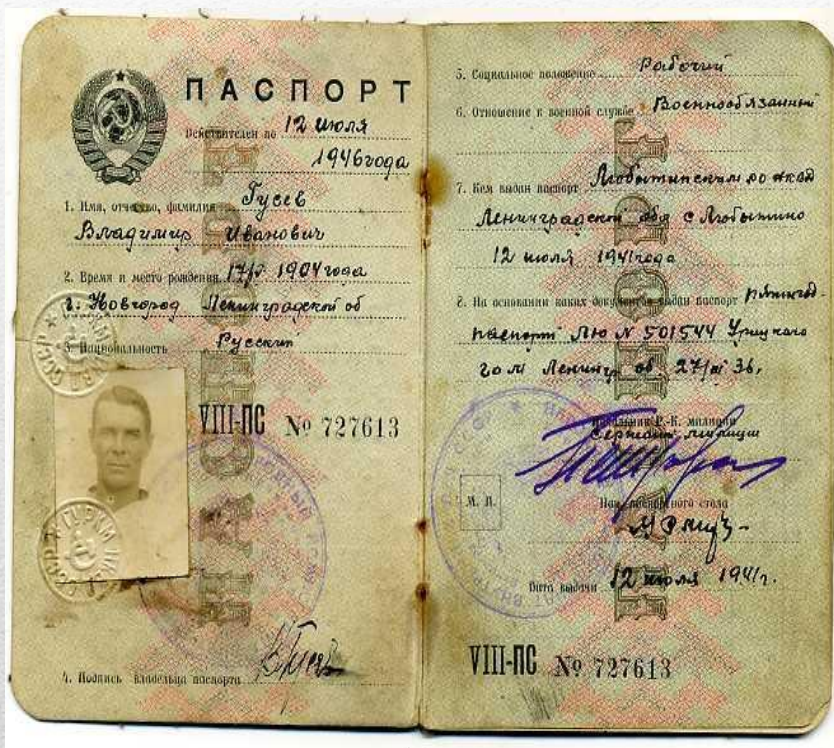 ПАСПОРТ
Действителен по 12 июля
1946 года
1. Имя, отчество, фамилия Гусев
Владимир Иванович
2. Время и место рождения 1904 года
г. Новгород Ленинградской об
3. Национальность Русский
VIII-ПС № 727613
4. Подпись владельца паспорта
5. Социальное положение Рабочий
6. Отношение к военной службе Военнообязанный
7. Кем выдан паспорт Любытинским РО НКВД
Ленинградской обл с Любытино
12 июля 1941 года
8. На основании каких документов выдан паспорт
паспорт № 501544 Урицкого
Ленингр об. 36,
Начальник Р.-К. милиции
Сержант милиции
М. П.
Нач. паспортного стола
Дата выдачи 12 июля 1941 г.
VIII-ПС № 727613